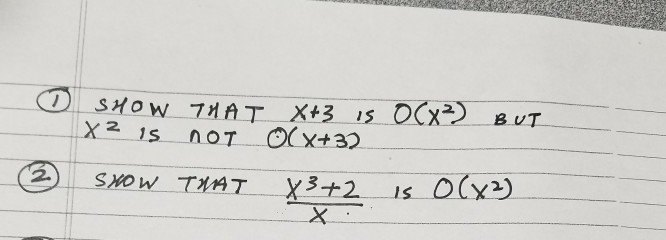 ① SHOW THAT X+3 IS O(X²) BUT
X² IS NOT O(X+3)
② SHOW THAT (X³+2)/X IS O(X²)